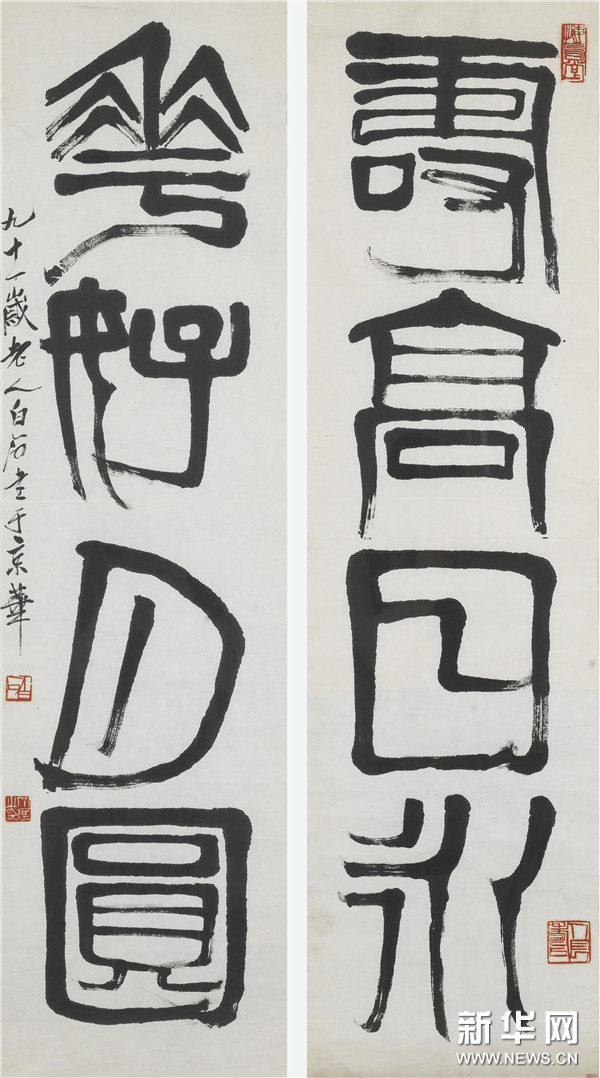 悔烏堂
壽高日永
人長壽
華好月圓
九十一歲老人白石書于京華
新华网
WWW.NEWS.CN